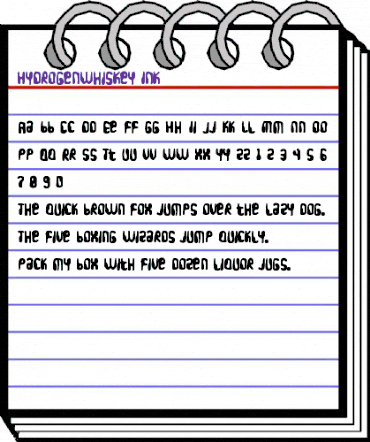 HydrogenWhiskey Ink
Aa Bb Cc Dd Ee Ff Gg Hh Ii Jj Kk Ll Mm Nn Oo
Pp Qq Rr Ss Tt Uu Vv Ww Xx Yy Zz 1 2 3 4 5 6
7 8 9 0
The quick brown fox jumps over the lazy dog.
The five boxing wizards jump quickly.
Pack my box with five dozen liquor jugs.